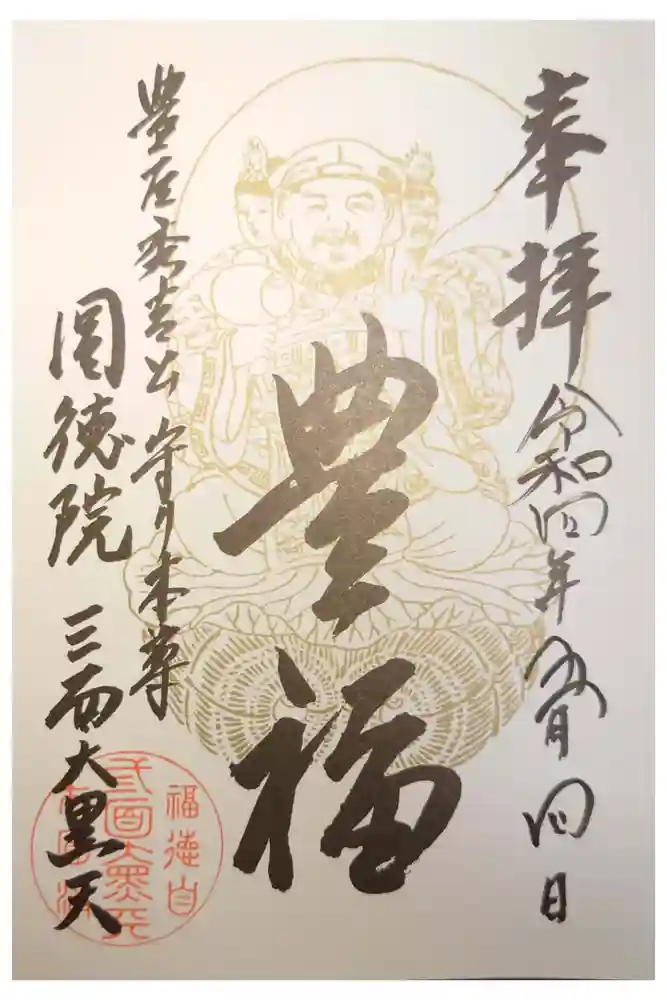 奉拝
令和四年五月四日
豊福
豊臣秀吉公 守り本尊
圓徳院 三面大黒天
福徳自
三面大黒天